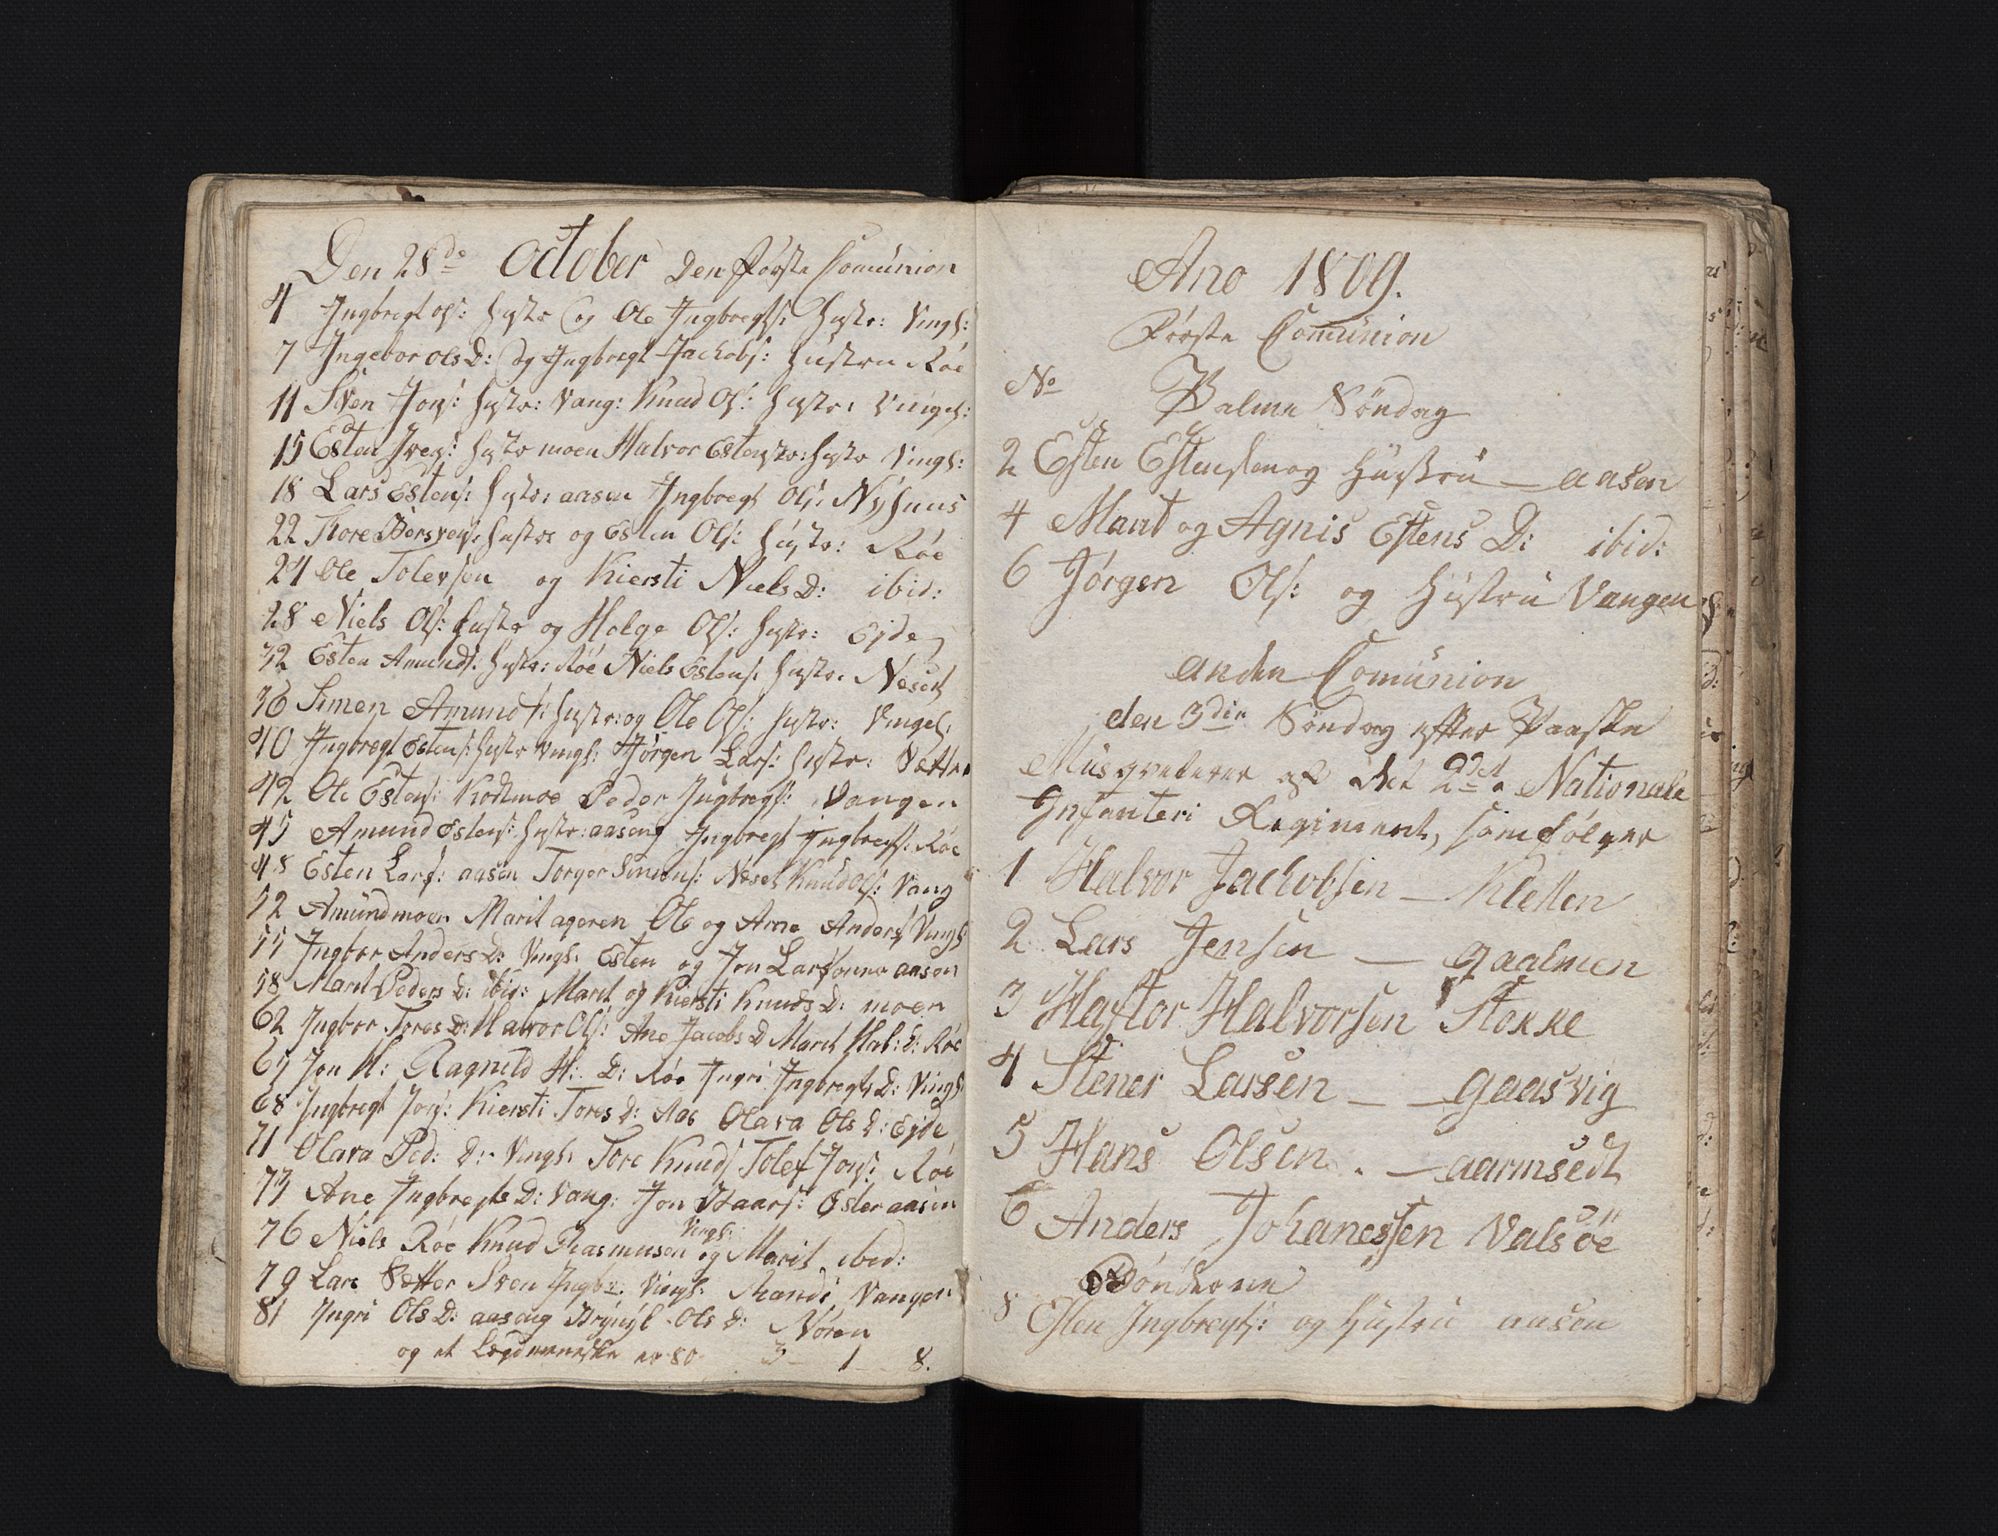 Den 28de October Den Første Comunion
4 Ingbregt Ols: Hustr og Ole Ingbregts: Hustr: Vingl:
7 Ingebor Ols D: og Ingbregt Jachobs: Hustru Røe
11 Sven Jons: Hustr: Vang: Knud Ols: Hustr: Vingel:
15 Esten Ivers: Hustr moen Halvor Estens: Hustr Vingl:
18 Lars Estens: Hustr: aasen Ingbregt Ols: Nyhuus
22 Tore Hustr og Esten Ols: Hustr: Røe
24 Ole Tolevsen og Kiersti Niels D: ibid:
28 Niels Ols: Hustr og Holge Ols: Hustr: Eide
32 Esten Amunds: Hustr: Røe Niels Estens: Hustr: Neset
36 Simen Amunds: Hustr: og Ole Ols: Hustr: Vingel:
40 Ingbregt Estens: Hustr Vingl: Jørgen Lars: Hustr: Sætter
42 Ole Estens: Kodtmoe Peder Ingbregts: Vangen
45 Amund Estens: Hustr: aaseng Ingbregt Ingbregts: Røe
48 Esten Lars: aasen Torger Simens: Neset Knud Ols: Vang
52 Amund moen Marit ageren Ole og Arne Anders: Vingl
55 Ingbor Anders D: Vingl: Esten og Jon Larsønner aasen
58 Marit Peders D: ibid: Marit og Kiersti Knuds D: moen
62 Ingbor Tores D: Halvor Ols: Ane Jacobs D Marit Hal: D: Røe
65 Jon H: Ragnild H: D: Røe Ingri Ingbregts D: Vingl
68 Ingbregt Jons: Kiersti Tores D: Aas Olava Ols D: Eide
71 Olava Ped: D: Vingl: Tore Knuds Tolef Jons: Røe
73 Ane Ingbregts D: Vang: Jon Haars: Øster aasen
Vingl:
76 Niels Røe Knud Rasmusen og Marit ibid:
79 Lars Sætter Sven Ingbr: Vingl: Randi Vangen
81 Ingri Ols D: aaseng Brynyl Ols D: Nøren
og et Legdmenniske er 80 3 1 8.
Ano 1809.
Første Comunion
No Palme Søndag
2 Esten Estensen og Hustru – aasen
4 Marit og Agnis Estens D: ibid:
6 Jørgen Ols: og Hustru Vangen
anden Comunion
den 3die Søndag efter Paaske
Musqveterer af det 2det Nationale
Infanteri Regiment, som følger
1 Halvor Jachobsen – Kletten
2 Lars Jensen – gaalmen
3 Haftor Halvorsen Stokke
4 Stener Larsen – – gaasvig
5 Hans Olsen. – aarmsedt
6 Anders Johanessen Valsøe
Bønderne
8 Esten Ingbregts: og Hustru aasen